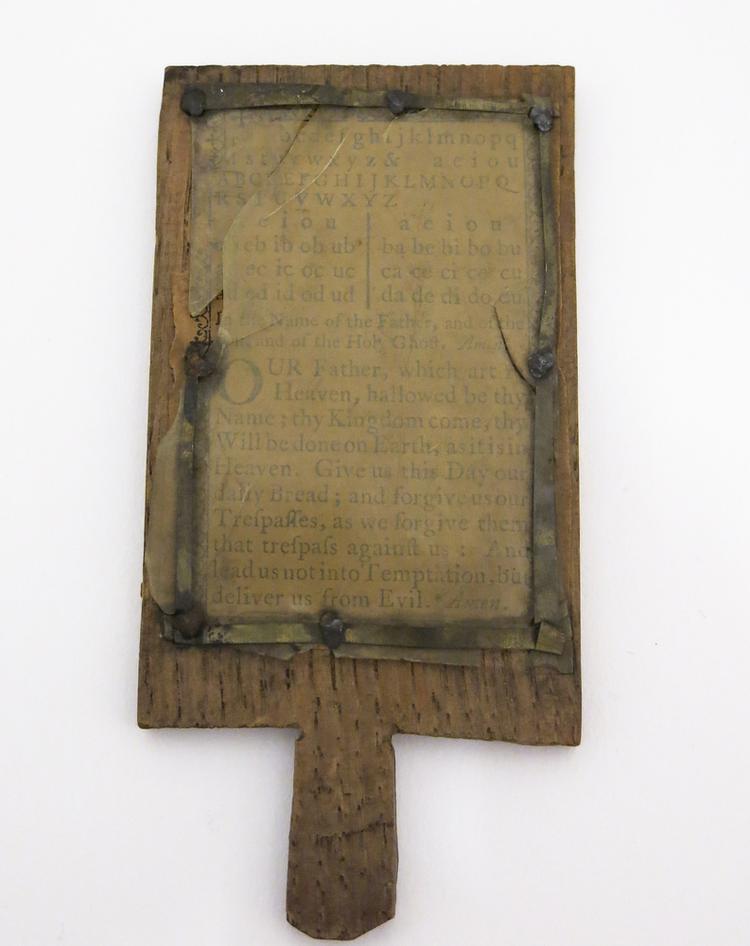 bcdefghijklmnopq
stuvwxyz& aeiou
ABCDEFGHIJKLMNOPQ
RSTUVWXYZ
e i o u | a e i o u
eb ib ob ub | ba be bi bo bu
ec ic oc uc | ca ce ci co cu
ed id od ud | da de di do du
In the Name of the Father, and of the
and of the Holy Ghoſt. Amen.
OUR Father, which art in
Heaven, hallowed be thy
Name; thy Kingdom come, thy
Will be done on Earth, as it is in
Heaven. Give us this Day our
daily Bread; and forgive us our
Treſpaſſes, as we forgive them
that treſpaſs againſt us: And
lead us not into Temptation, but
deliver us from Evil. Amen.